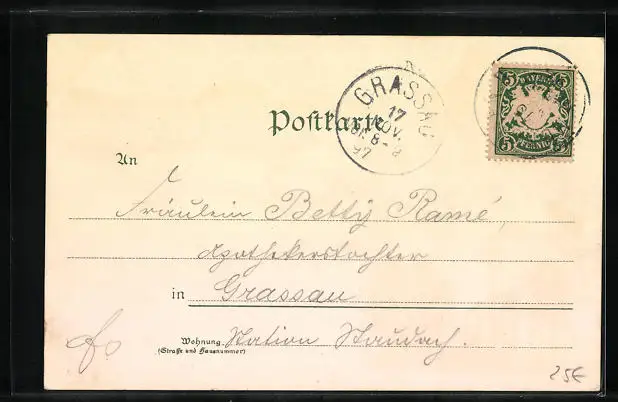 Postkarte
GRASSAU
17
NOV.
97
5 BAYERN 5
5 PFENNIG 5
An
Fräulein Betty Ramé,
Apothekerstochter
in Grassau
Wohnung Station Staudach.
(Straße und Hausnummer)
25€